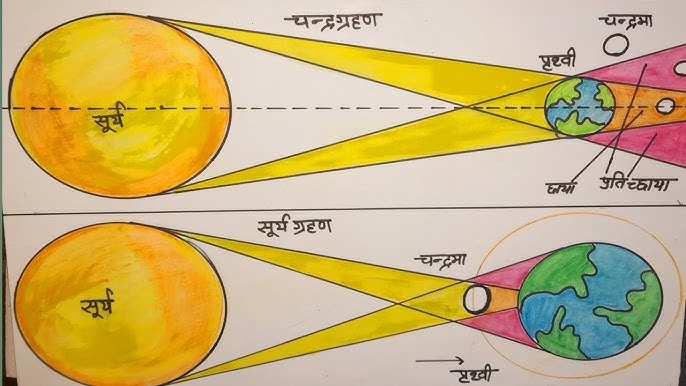 चन्द्रग्रहण
चन्द्रमा
पृथ्वी
सूर्य
छाया
प्रतिच्छाया
सूर्य ग्रहण
चन्द्रमा
सूर्य
पृथ्वी